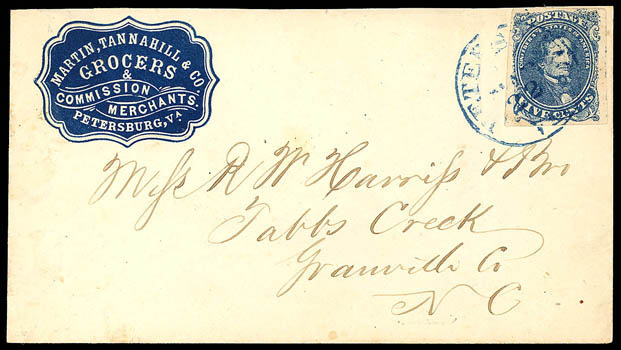 MARTIN, TANNAHILL & CO.
GROCERS
&
COMMISSION
MERCHANTS.
PETERSBURG, VA
POSTAGE
CONFEDERATE STATES OF AMERICA
FIVE CENTS
Messs R W Harriss & Bro
Tabbs Creek
Granville Co
N C